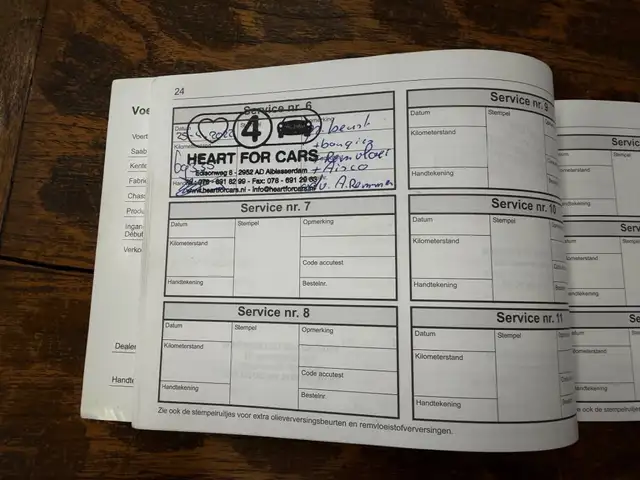 24
Service nr. 6
Datum
Opmerking
4
gr. beurt
+ bougies
HEART FOR CARS
+ Remvloei
Edisonweg 6 - 2952 AD Alblasserdam
+ Airco
Tel: 078 - 691 82 99 - Fax: 078 - 691 26 63
www.heartforcars.nl - info@heartforcars.nl
v. A. Remmen
Service nr. 7
Datum
Stempel
Opmerking
Kilometerstand
Code accutest
Handtekening
Bestelnr.
Service nr. 8
Datum
Stempel
Opmerking
Kilometerstand
Code accutest
Handtekening
Bestelnr.
Service nr. 9
Datum
Stempel
Kilometerstand
Handtekening
Service nr. 10
Datum
Stempel
Kilometerstand
Handtekening
Service nr. 11
Datum
Stempel
Kilometerstand
Handtekening
Zie ook de stempelruitjes voor extra olieverversingsbeurten en remvloeistofverversingen.
Voe
Voert
Saab
Kente
Fabri
Chass
Produ
Ingan
Début
Verko
Dealer
Handte
Stempel
Kilometerstand
Handtekening
Stempel
Kilometerstand
Handtekening
Stempel
Kilometerstand
Handtekening
e ook de stempelruitjes